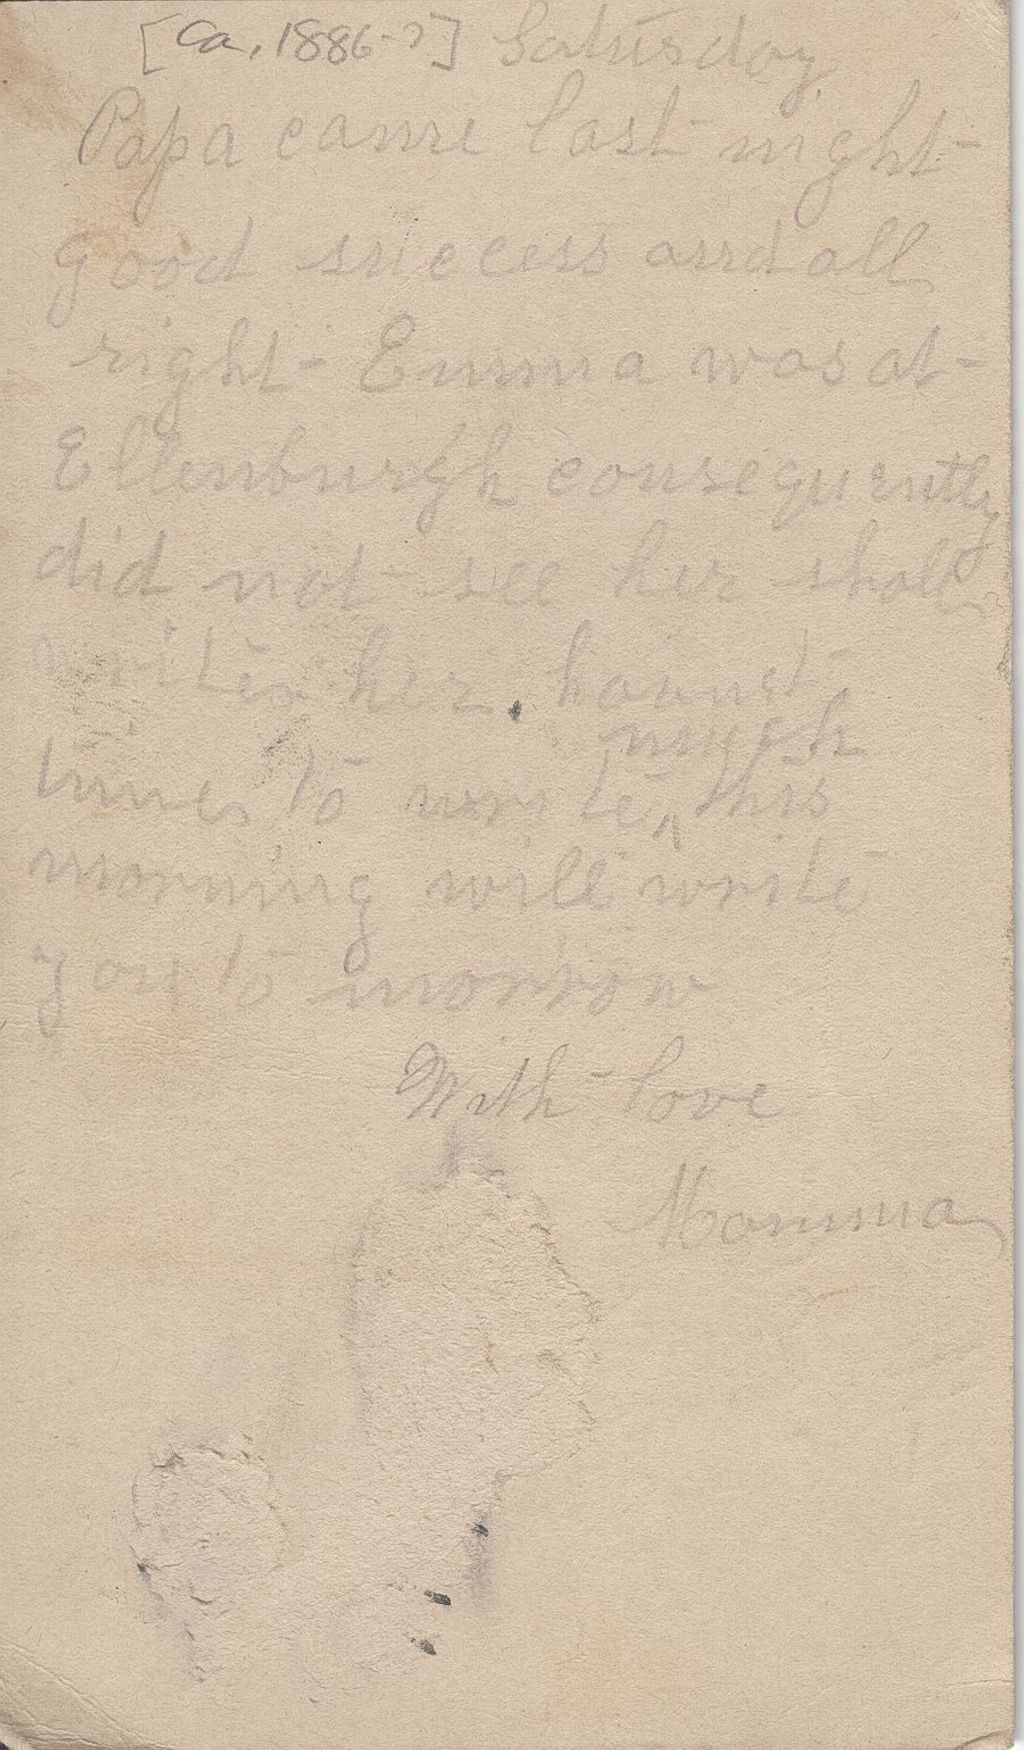 [Ca. 1886-?] Saturday
Papa came last night-
good success and all
right- Emma was at-
Ellenburgh consequently
did not- see her shall
write her. havnet
much
time to write ^ this
morning will write
you to morrow
With love
Mamma